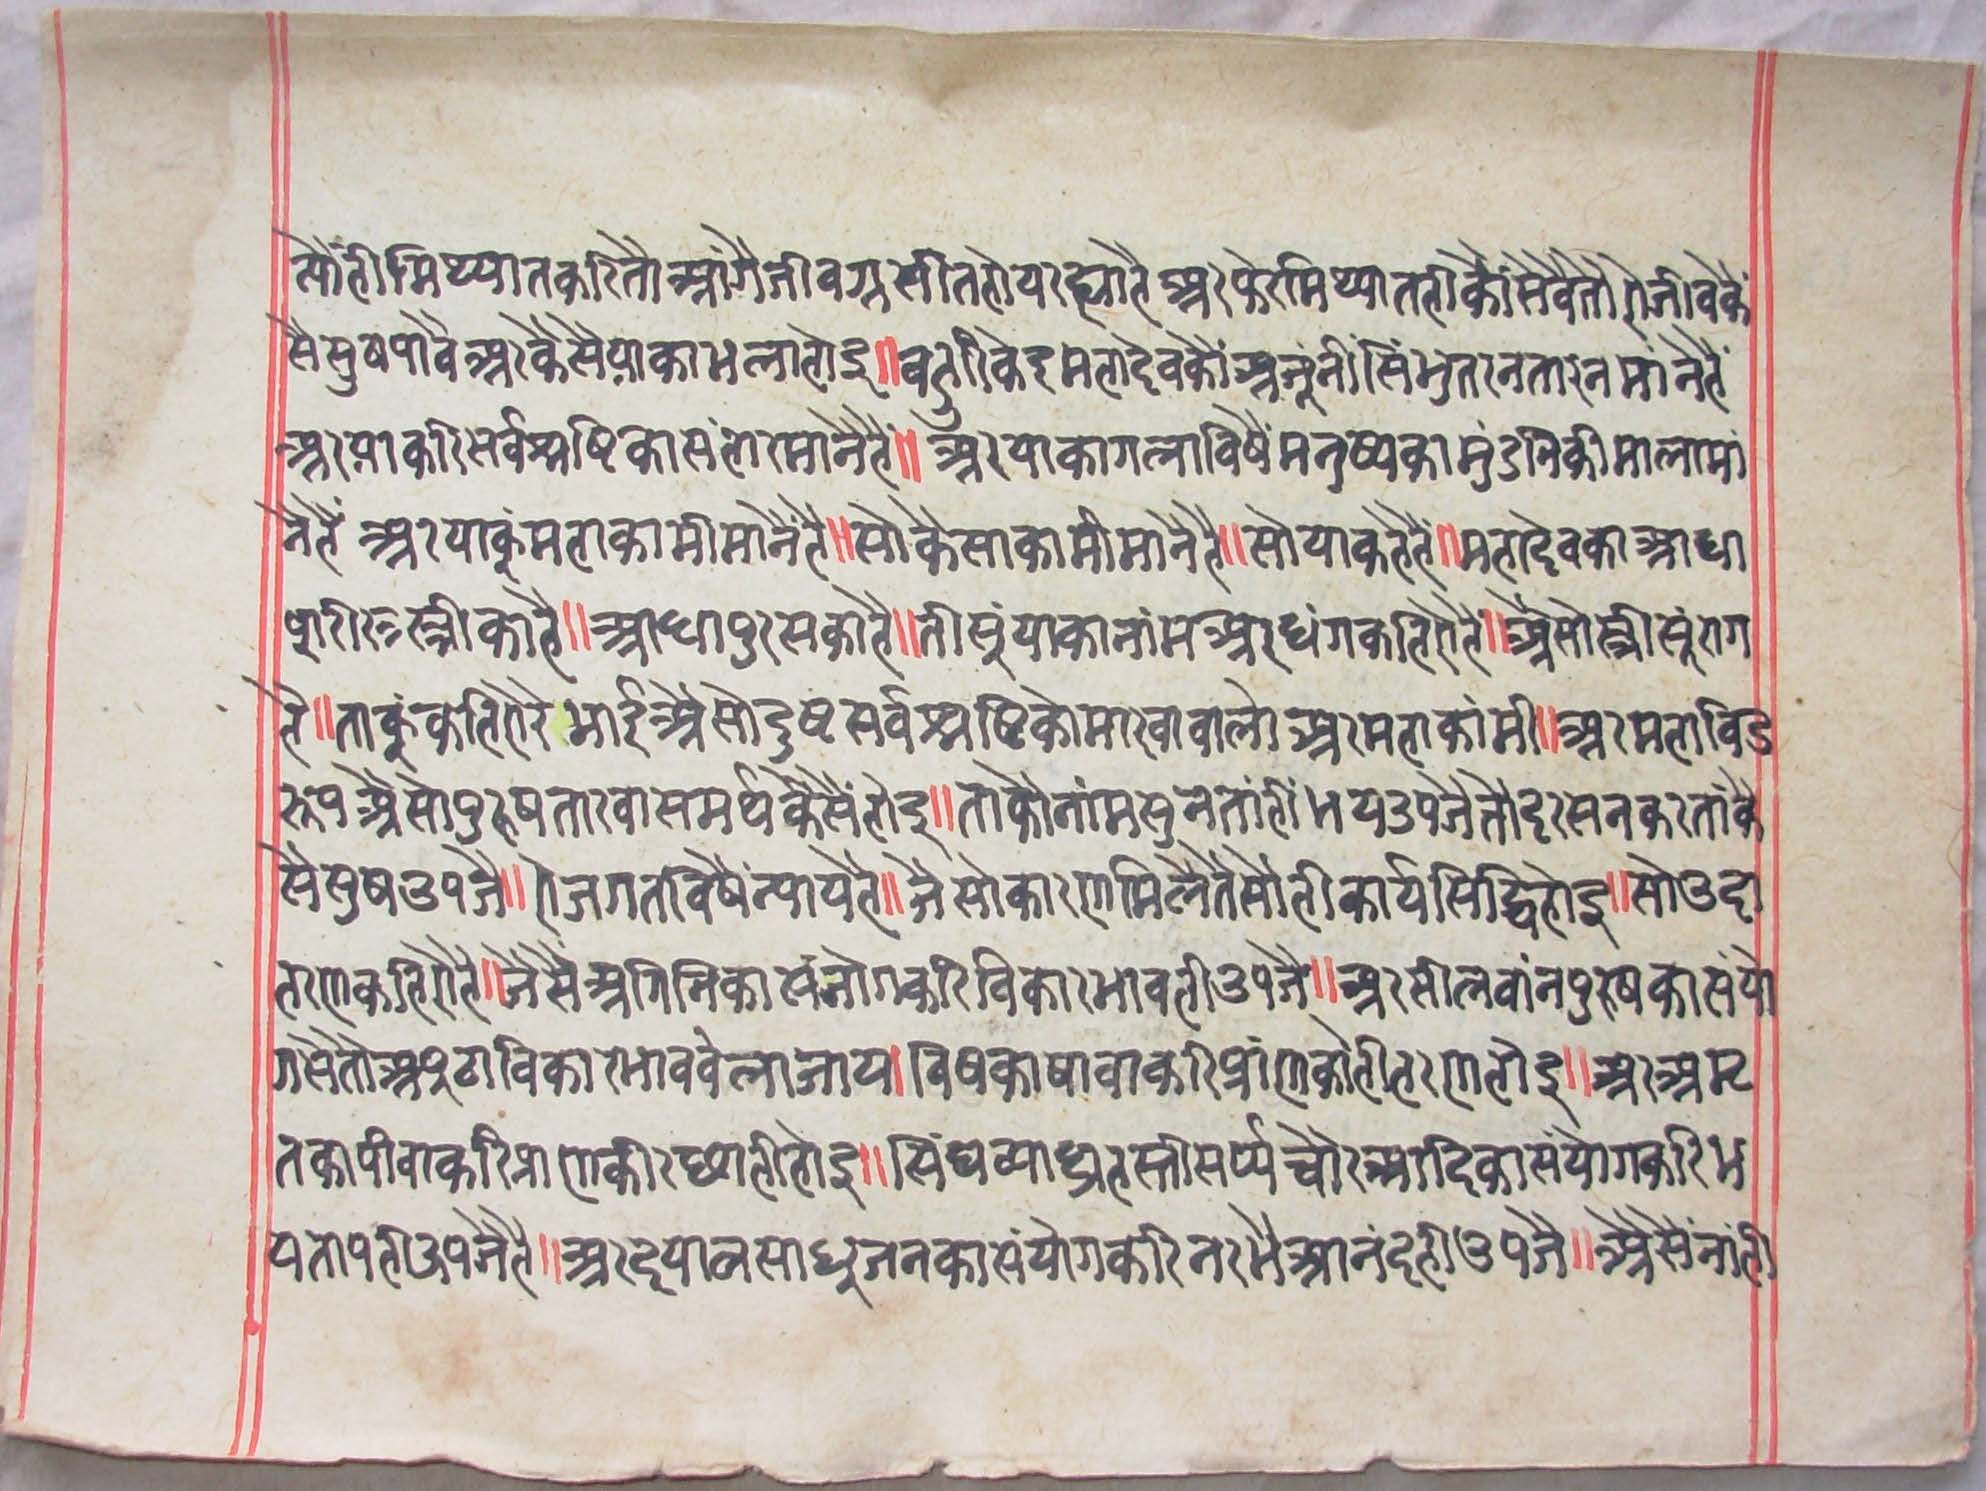 सौही मिथ्यात करि तौ आगै जीव ग्रसीत होय रह्या है अर फेर मिथ्यात ही कौं सेवै तौ रे जीव कै
सै सुष पावै अर कैसै याका भला होइ ॥ बहुरि केइ महादेव कौं अजूंनीं सिंभु तरनतारन मांनै हैं
अर याकरि सर्व श्रष्टि का संहार मानै हैं ॥ अर याका गला विषैं मनुष्य का मुंडनि की माला मां
नै हैं अर याकूं महाकामी मानैं है ॥ सो कैसा कामी मानै है ॥ सो या कहै हैं ॥ महादेव का आधा
शरीर स्त्री का है ॥ आधा पुरस का है ॥ ती सूं याका नांम अरधंग कहिए है ॥ अैसो स्त्री सूं राग
है ॥ ताकूं कहिए रे भाई अैसो दुष्ट सर्व श्रष्टि को मारवावालो अर महाकांमी ॥ अर महाविड
रूप अैसो पुरुष तारवा समर्थ कैसैं होइ ॥ ताको नांम सुनतां हीं भय उपजै तौ दरसन करतां कै
सै सुष उपजै ॥ ए जगत विषैं न्याय है ॥ जैसो कारण मिलै तैसौ ही कार्य सिद्धि होइ ॥ सो उदा
हरण कहिए है ॥ जैसैं अगिनि का संजोग करि विकार भाव ही उपजै ॥ अर सीलवांन पुरुष का संयो
ग सै तौ अपूठा विकार भाव वेला जाय । विष का षावा करि प्रांण कौ ही हरण होइ ॥ अर अम्र
त का पीवा करि प्राण की रछ्या ही होइ ॥ सिंघ व्याघ्र हस्ती सर्प्प चौर आदि का संयोग करि भ
य ताप ही उपजै है ॥ अर दयाल साधु जन का संयोग करि नरभै आनंद ही उपजै ॥ अैसैं नांही